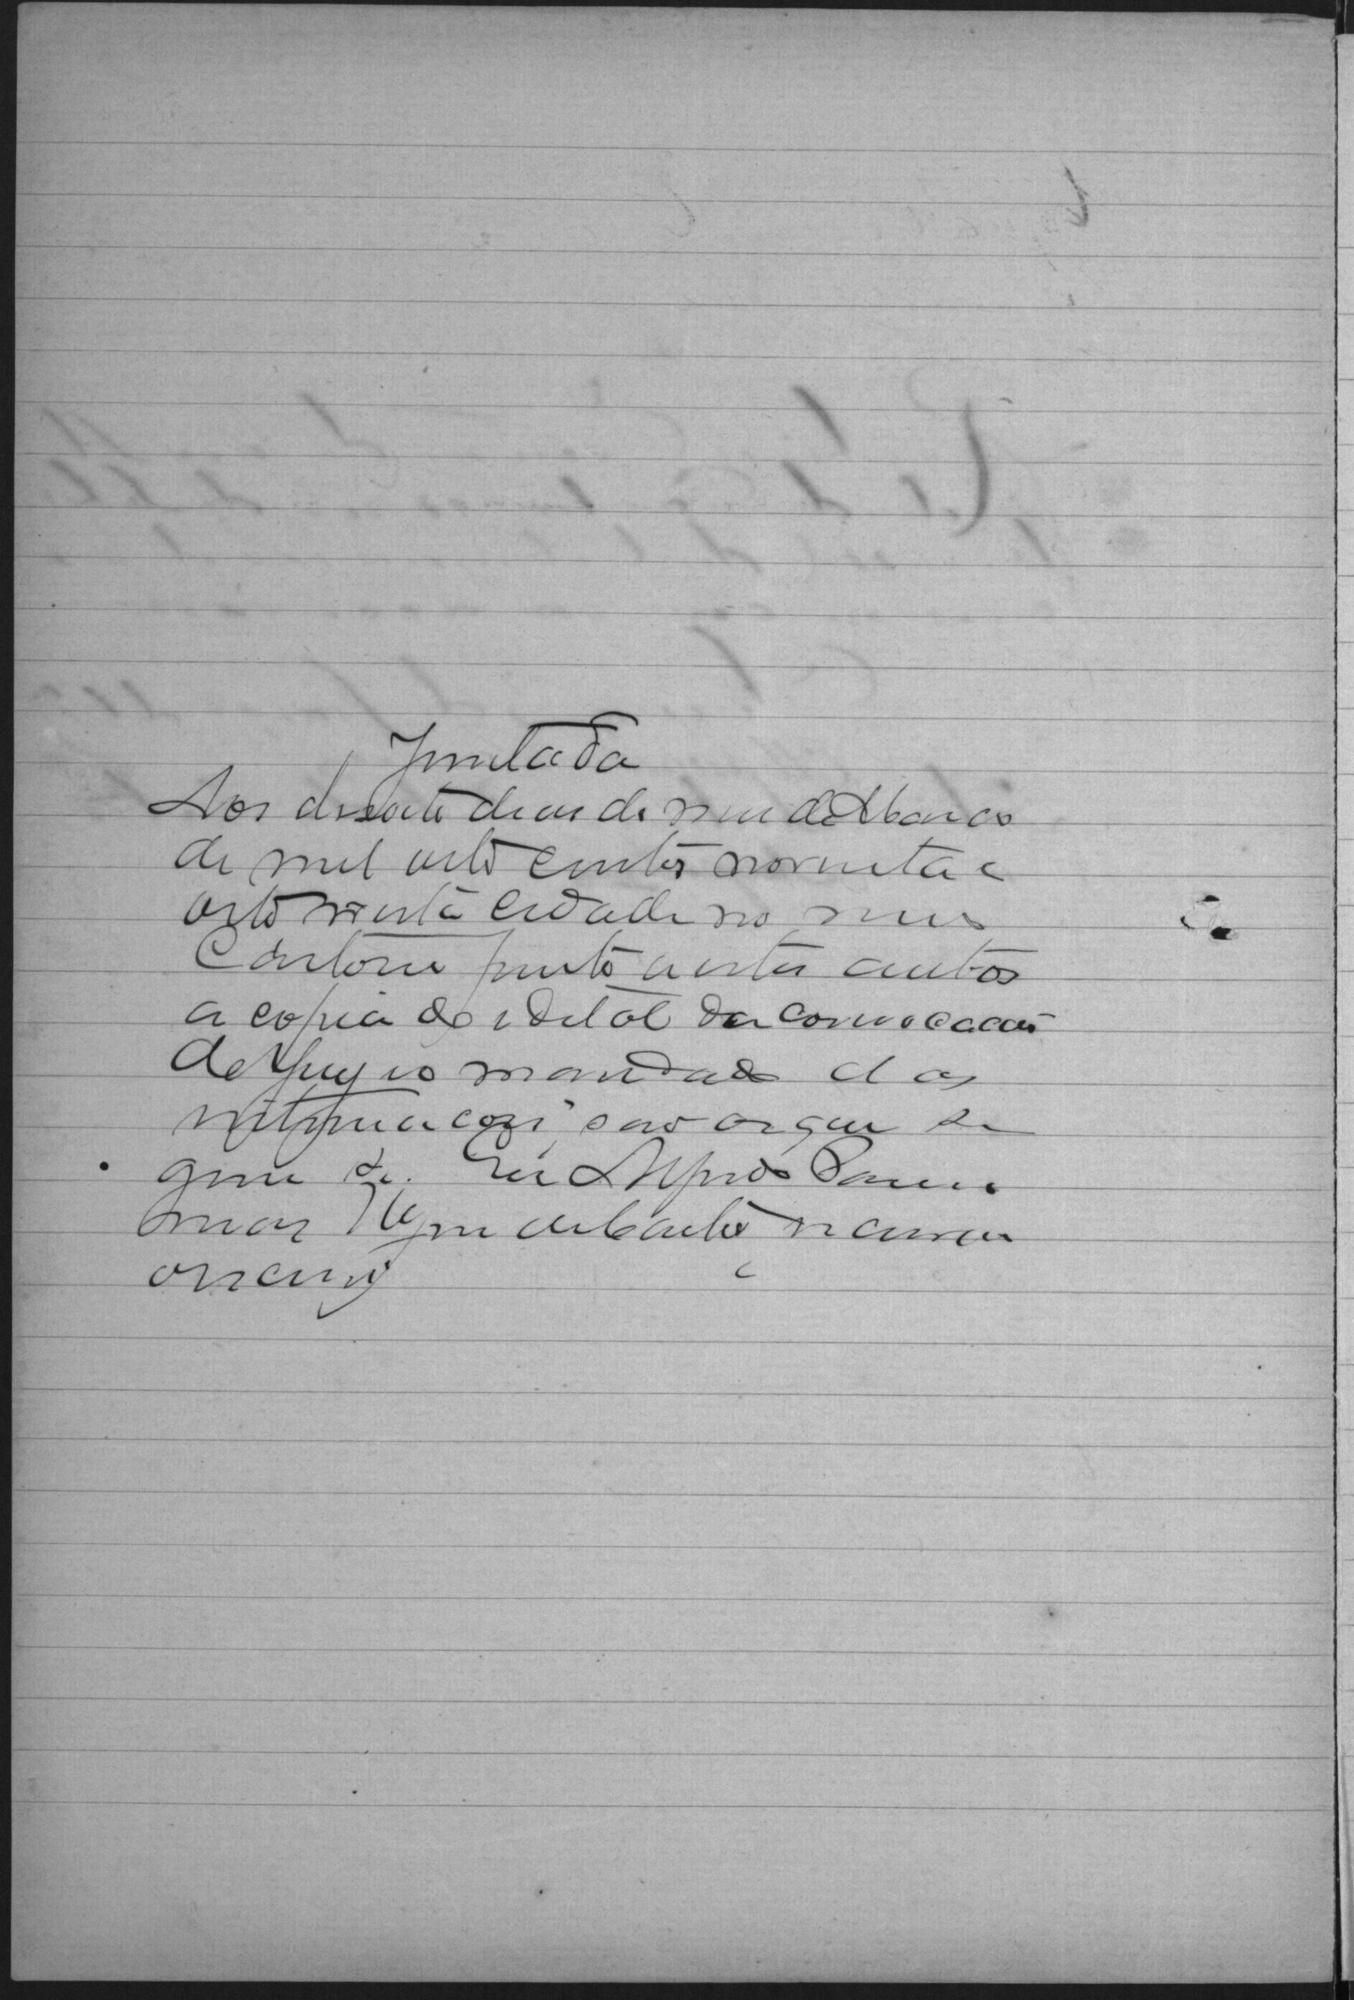 Juntada
Aos dezoite dias do mes de Março
de mil oito centos noventa e
oito nesta cidade no meu
Cartorio junto a estes autos
a copia do edital da convocação
do Jury o mandado das
intimações, são os que se
gue se. Eu Alfredo
ajudante
escrevi